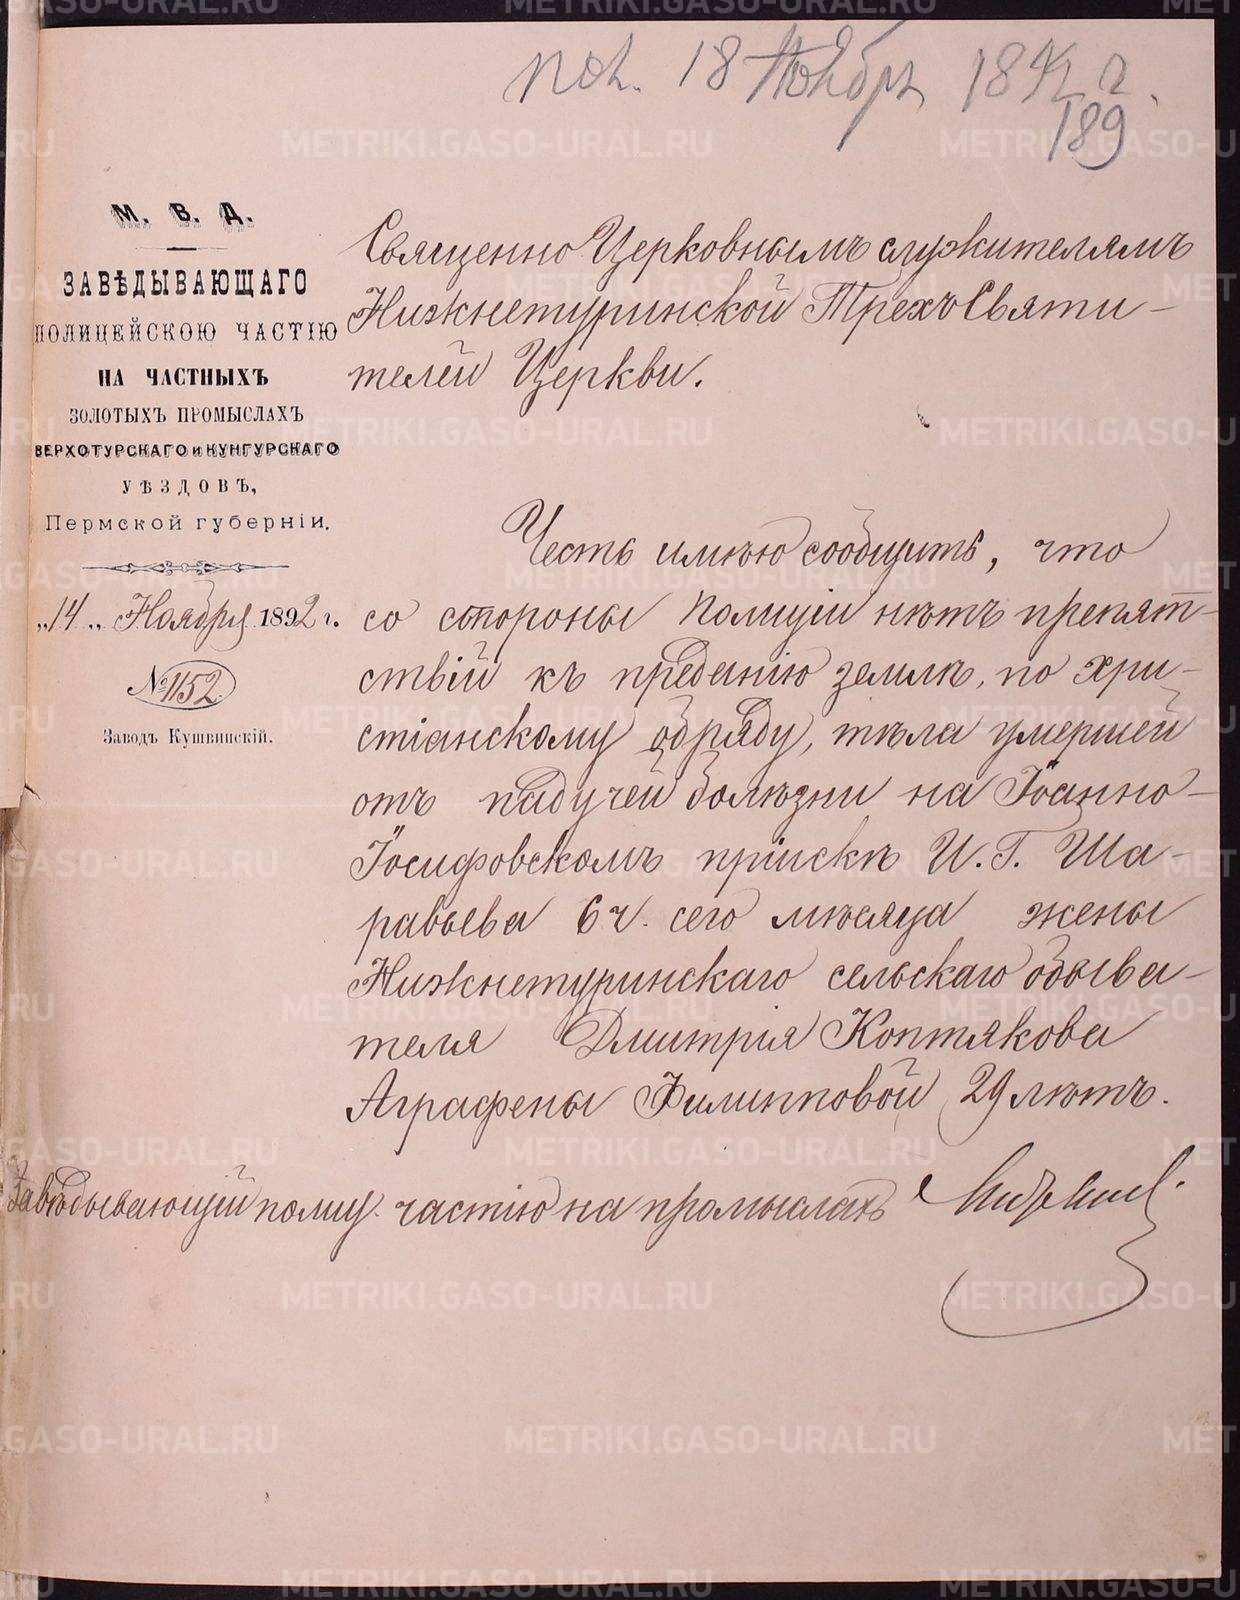 18 Ноябрь 1892 г.
189
М. В. Д.
ЗАВѢДЫВАЮЩАГО
ПОЛИЦЕЙСКОЮ ЧАСТІЮ
НА ЧАСТНЫХЪ
ЗОЛОТЫХЪ ПРОМЫСЛАХЪ
ВЕРХОТУРСКАГО и КУНГУРСКАГО
УѢЗДОВЪ,
Пермской губерніи.
„14„ Ноября 1892 г.
№ 1152.
Заводъ Кушвинскій.
Священно Церковнымъ служителямъ
Нижнетуринской Трехъ Святи-
телей Церкви.
Честь имѣю сообщить, что
со стороны полиціи нѣтъ препят-
ствій къ преданію землѣ, по хри-
стіанскому обряду, тѣла умершей
отъ падучей болѣзни на Іоанно-
Іосифовскомъ пріискѣ И. Г. Ша-
равьева 6 ч. сего мѣсяца жены
Нижнетуринскаго сельскаго обыва-
теля Дмитрія Коптякова
Аграфены Филипповой 29 лѣтъ.
Завѣдывающій полиц. частію на промыслахъ
METRIKI.GASO-URAL.RU